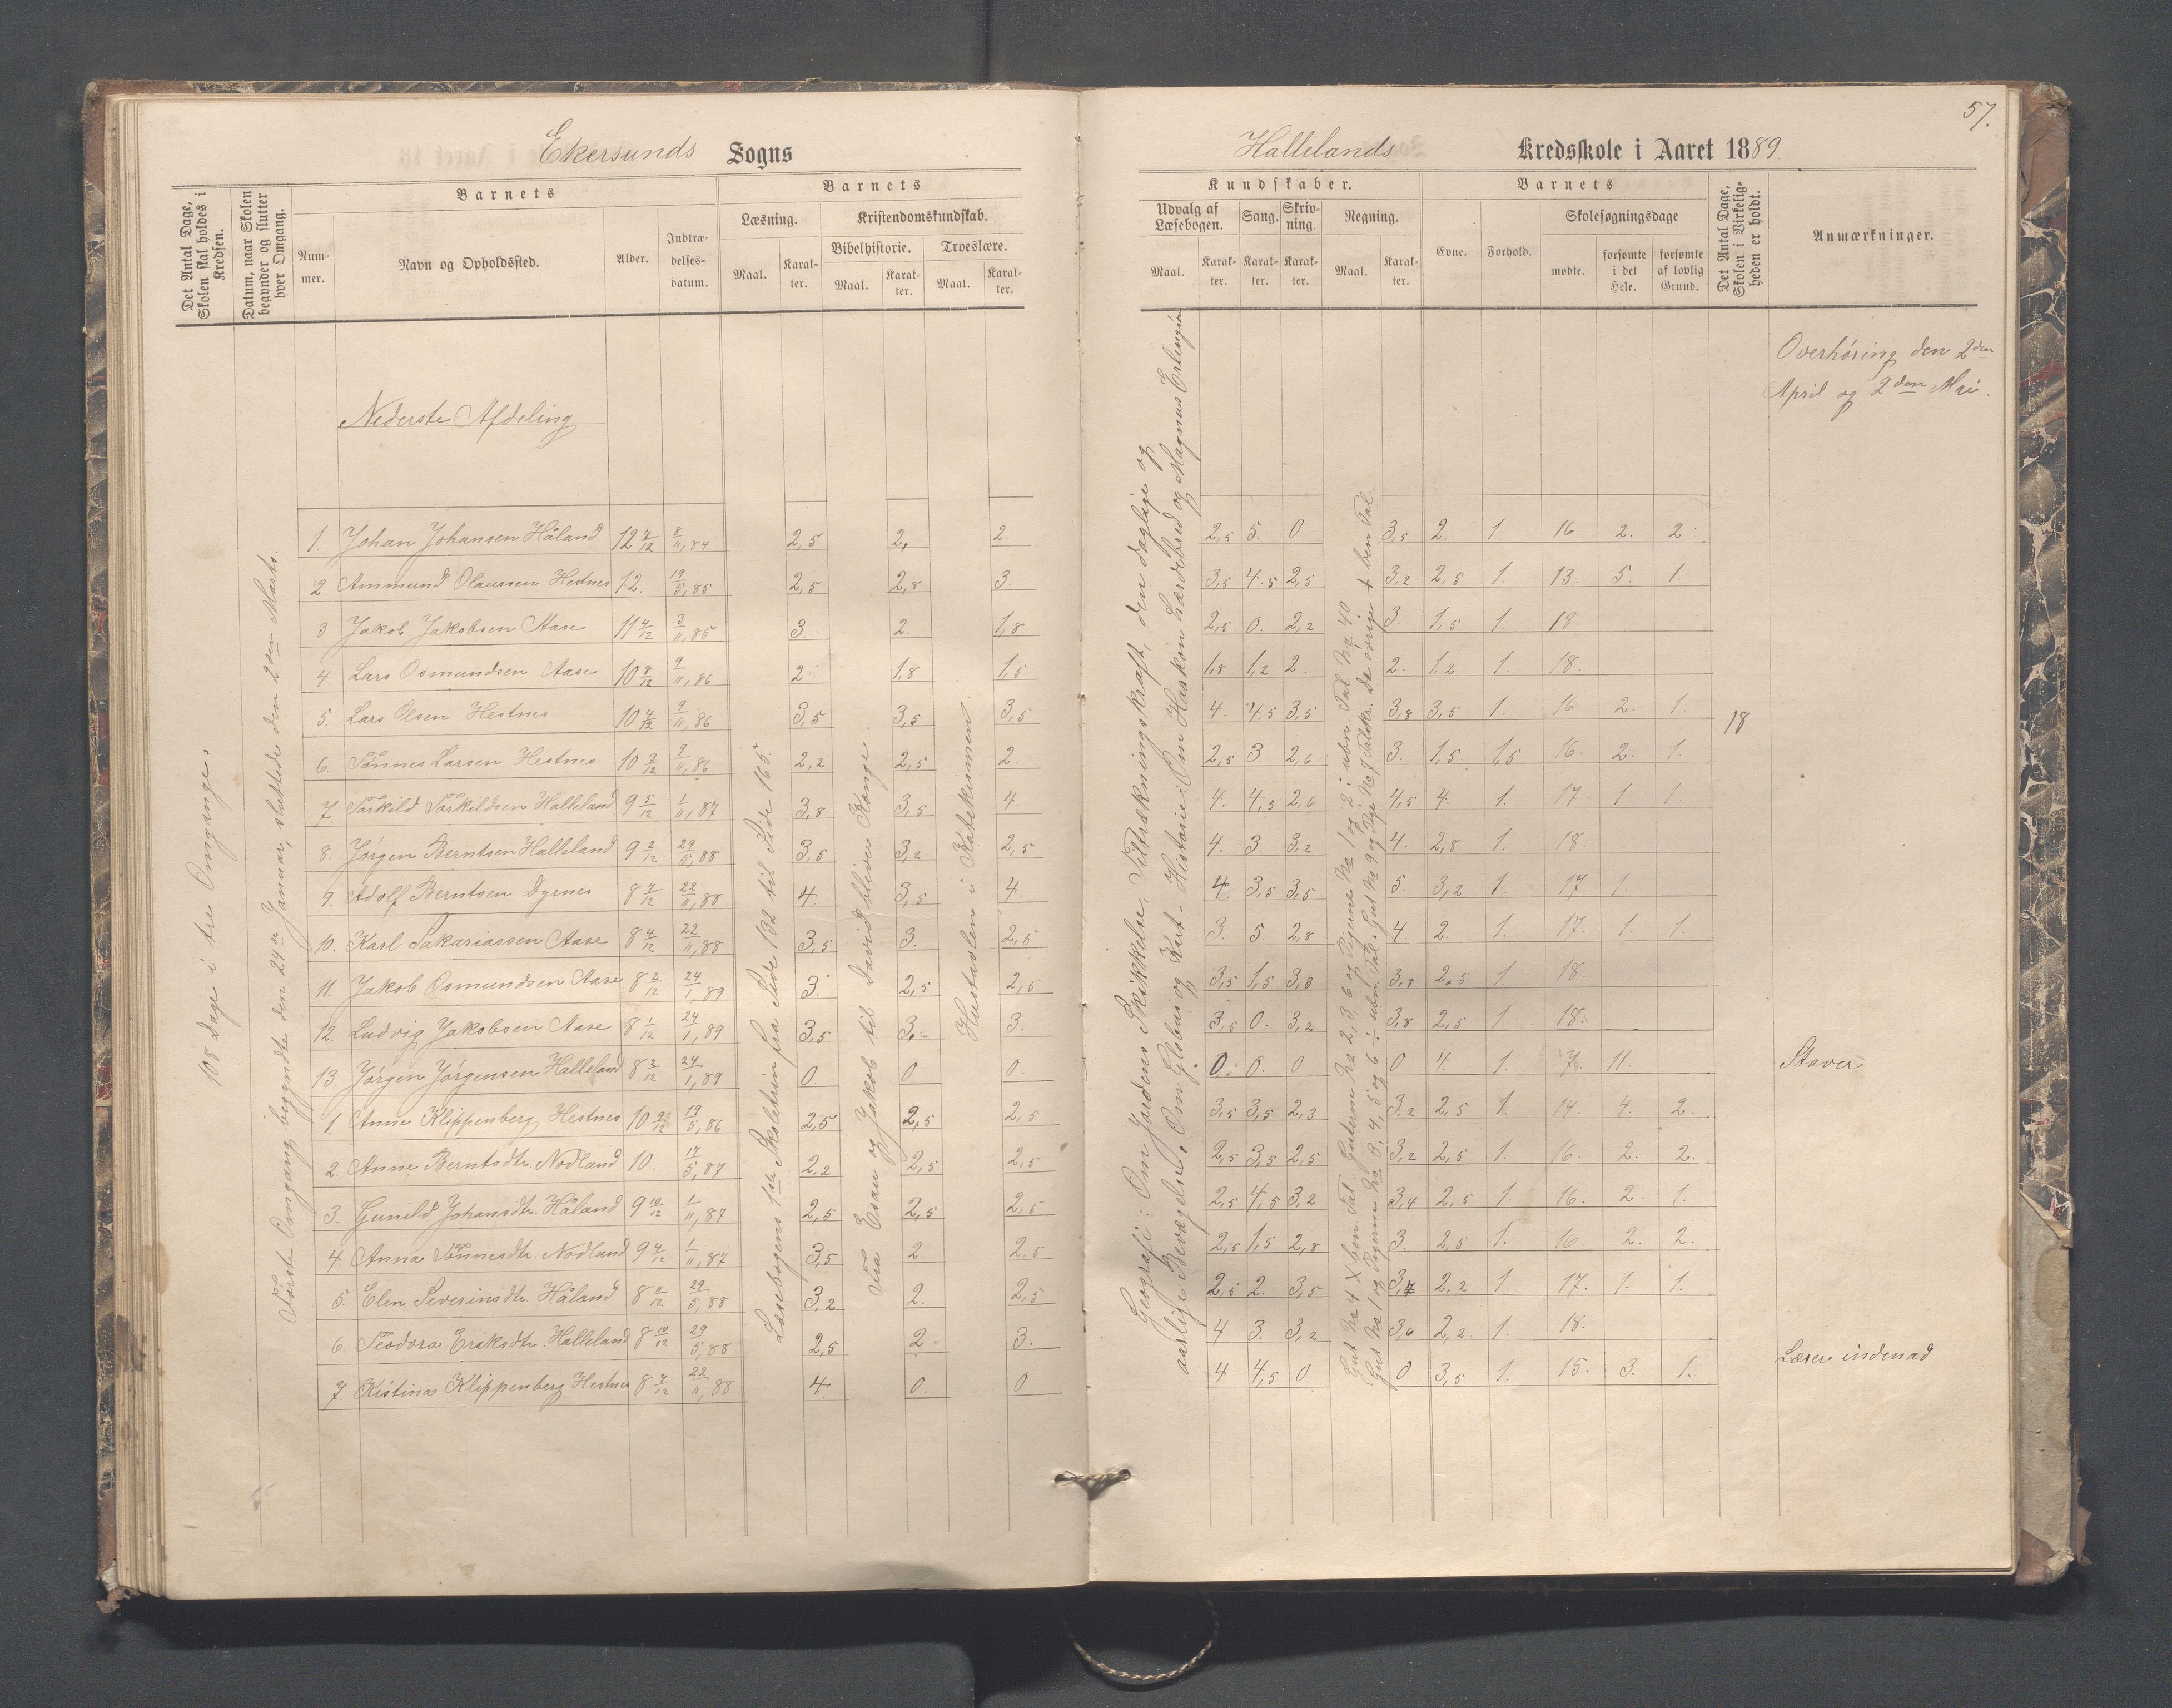 57.
Ekersunds Sogns
Hallelands Kredsskole i Aaret 1889
Det Antal Dage, Skolen skal holdes i Kredsen.
Datum, naar Skolen begynder og slutter hver Omgang.
Barnets
Nummer.
Navn og Opholdssted.
Alder.
Indtrædelsesdatum.
Barnets
Læsning.
Maal.
Karakter.
Kristendomskundskab.
Bibelhistorie.
Maal.
Karakter.
Troeslære.
Maal.
Karakter.
Kundskaber.
Udvalg af Læsebogen.
Maal.
Karakter.
Sang.
Karakter.
Skrivning.
Karakter.
Regning.
Maal.
Karakter.
Barnets
Evne.
Forhold.
Skolesøgningsdage
mødte.
forsømte i det Hele.
forsømte af lovlig Grund.
Det Antal Dage, Skolen i Virkeligheden er holdt.
Anmærkninger.
Overhøring den 2den
April og 2den Mai.
Nederste Afdeling
108 Dage i tre Omgange.
Første Omgang begyndte den 24de Januar, sluttede den 2den Marts
Læsebogens 1ste Skoletrin fra Side 132 til Side 165.
Fra Esau og Jakob til David bliver Konge.
Hustavlen i Katekismen
Geografi: Om Jordens Skikkelse, Tiltrækningskraft, den daglige og
aarlige Bevægelse. Om Globus og Kart. Historie: Om Haakon Herdebred og Magnus Erlingsøn
18
1. Johan Johansen Håland 12 7/12 8/11,84 2,5 2, 2. 2,5 5. 0 3,5 2. 1. 16. 2. 2.
2. Ammund Olaussen Hestnes 12. 19/5,85 2,5 2,8 3. 3,5 4,5 2,5 3,2 2,5 1. 13. 5. 1.
3 Jakob Jakobsen Aase 11 4/12 3/11,85 3. 2. 1,8 2,5 0. 2,2 3. 1,5 1. 18.
4. Lars Osmundsen Aase 10 8/12 9/11,86 2 1,8 1,5 1,8 1,2 2. 2. 1,2 1. 18.
5. Lars Olsen Hestnes 10 4/12 9/11,86 3,5 3,5 3,5 4. 4,5 3,5 3,8 3,5 1. 16. 2. 1.
6. Tønnes Larsen Hestnes 10 3/12 9/11,86 2,2 2,5 2. 2,5 3. 2,6 3. 1,5. 1,5 16. 2. 1.
7. Torkild Torkildsen Halleland 9 5/12 1/11,87 3,8 3,5 4. 4. 4,5 2,6 4,5 4. 1. 17. 1 1.
8. Jørgen Berntsen Halleland 9 2/12 29/5,88 3,5 3,2 2,5 4. 3. 3,2 4. 2,8 1. 18.
9. Adolf Berntsen Dyrnes 8 7/12 22/11,88 4 3,5 4. 4. 3,5 3,5 5. 3,2 1. 17 1.
10. Karl Sakariassen Aase 8 4/12 22/11,88 3,5 3. 2,5 3. 5. 2,8 4. 2. 1. 17. 1. 1.
11. Jakob Osmundsen Aase 8 2/12 24/1,89 3. 2,5 2,5 3,5 1,5 3,8 3,8 2,5 1. 18.
12. Ludvig Jakobsen Aase 8 1/12 24/1,89 3,5 3. 3. 3,5 0. 3,2 3,8 2,5 1. 18.
13 Jørgen Jørgensen Halleland 8 2/12 24/1,89 0. 0 0. 0. 0. 0 0 4. 1. 7. 11. Staver
1. Anne Klippenberg Hestnes 10 9/12 19/5,86 2,5 2,5 2,5 3,5 3,5 2,3 3,2 2,5 1. 14. 4. 2.
2. Anne Berntsdtr. Nodland 10. 17/5,87 2,2 2,5 2,5 2,5 3,5 2,5 3,2 2,5 1. 16. 2. 2.
3. Gunild Johansdtr. Håland 9 10/12 1/11,87 2,5 2,5 2,5 2,5 4,5 3,2 3,4 2,5 1. 16. 2. 1.
4. Anna Tønnesdtr. Nodland 9 4/12 1/11,87 3,5 2. 2,5 2,5 1,5 2,8 3. 2,5 1. 16. 2. 2.
5. Elen Severinsdtr. Håland 8 11/12 29/5,88 3,2 2. 2,5 2,5 2. 3,5 2,2 1. 17. 1. 1.
6. Teodora Eriksdtr. Halleland 8 10/12 29/5,88 2,5 2. 3. 4 3. 3,2 3,6 2,2. 1. 18.
7. Kistina Klippenberg Hestnes 8 7/12 22/11,88 4. 0. 0 4 4,5 0. 0 3,5 1. 15. 3. 1. Læser indenad